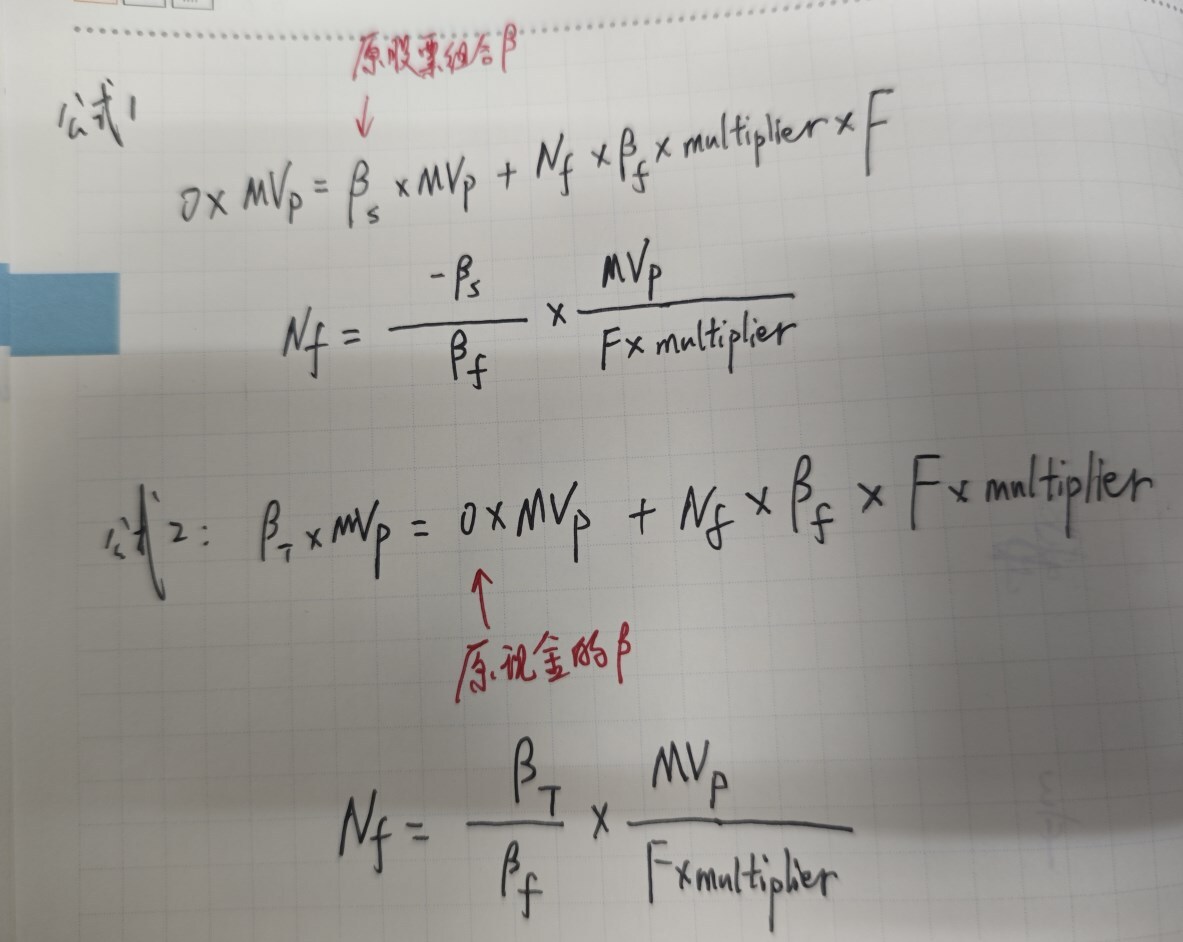 原股票组合β
公式1
↓
0×MVp = βs ×MVp + Nf ×βf× multiplier×F
Nf = -βs/βf × MVp/F×multiplier
公式2: βT×MVp = 0×MVp + Nf × βf × F×multiplier
↑
原现金的β
Nf = βT/βf × MVp/F×multiplier